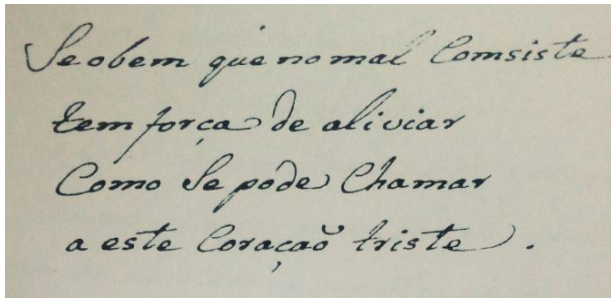 Se obem que no mal Comsiste
tem força de aliviar
Como Se pode Chamar
a este Coraçaõ triste.